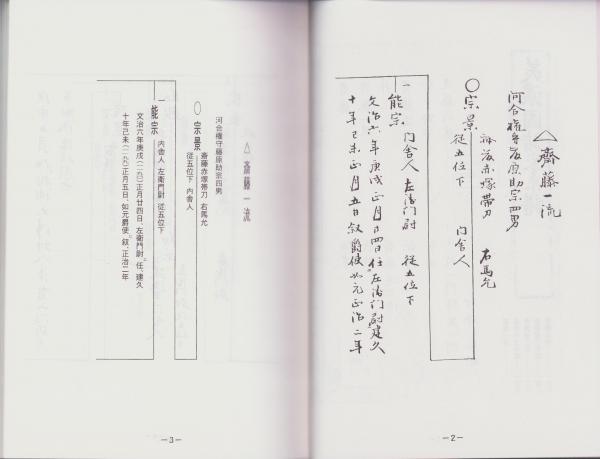 △齋藤一流
河合権守藤原助宗四男
〇宗景
斎藤赤塚帯刀 右馬允
従五位下 内舎人
一能宗 内舎人 左衛門尉 従五位下
文治六年庚戌正月廿四日任左衛門尉建久
十年己未正月五日叙爵使如元正治二年
－2－
△齋藤一流
河合権守藤原助宗四男
〇宗景
斎藤赤塚帯刀 右馬允
従五位下 内舎人
一能宗
内舎人 左衛門尉 従五位下
文治六年庚戌(一一九〇)正月廿四日、左衛門尉ニ任、建久
十年己未(一一九九)正月五日、如元爵使ニ叙、正治二年
－3－